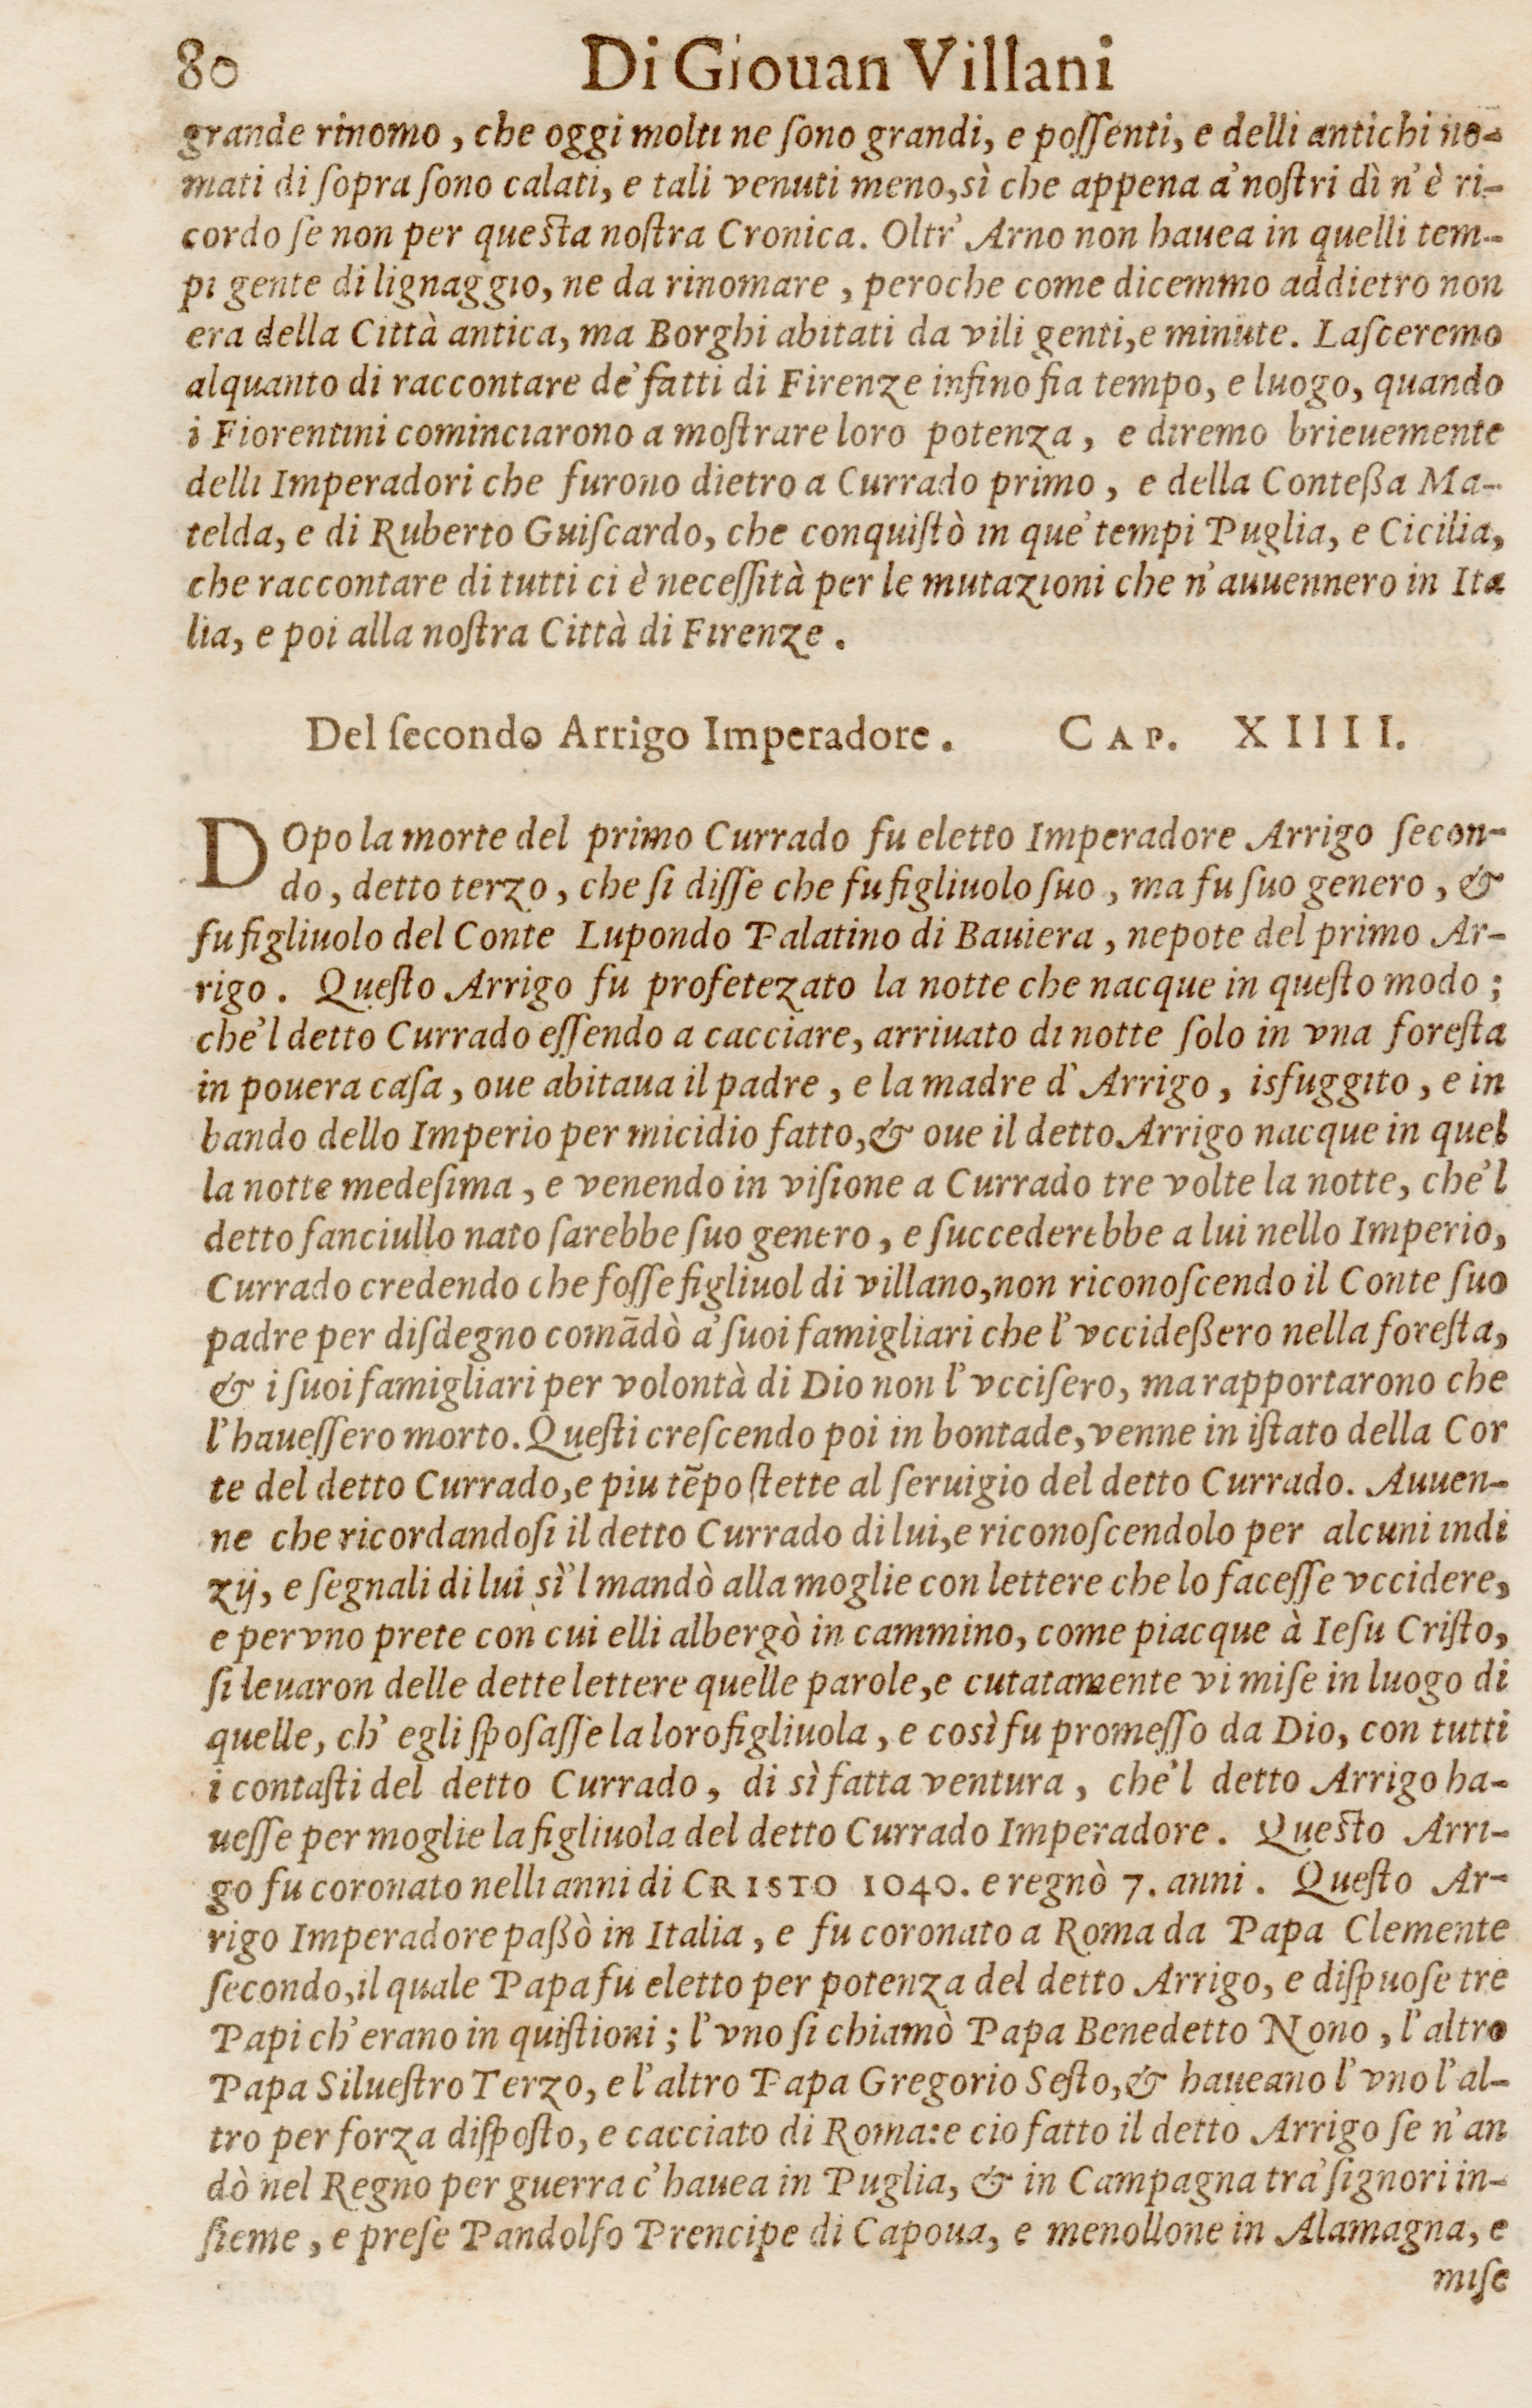 80 Di Giouan Villani
grande rinomo, che oggi molti ne ſono grandi, e poſſenti, e delli antichi no-
mati di ſopra ſono calati, e tali venuti meno, sì che appena a' noſtri dì n'è ri-
cordo ſe non per queſta noſtra Cronica. Oltr' Arno non hauea in quelli tem-
pi gente di lignaggio, ne da rinomare, peroche come dicemmo addietro non
era della Città antica, ma Borghi abitati da vili genti, e minute. Laſceremo
alquanto di raccontare de' fatti di Firenze infino fia tempo, e luogo, quando
i Fiorentini cominciarono a moſtrare loro potenza, e diremo brieuemente
delli Imperadori che furono dietro a Currado primo, e della Conteßa Ma-
telda, e di Ruberto Guiſcardo, che conquiſtò in que' tempi Puglia, e Cicilia,
che raccontare di tutti ci è neceſſità per le mutazioni che n'auuennero in Ita
lia, e poi alla noſtra Città di Firenze.
Del ſecondo Arrigo Imperadore. CAP. XIIII.
DOpo la morte del primo Currado fu eletto Imperadore Arrigo ſecon-
do, detto terzo, che ſi diſſe che fu figliuolo ſuo, ma fu ſuo genero, &
fu figliuolo del Conte Lupondo Palatino di Bauiera, nepote del primo Ar-
rigo. Queſto Arrigo fu profetezato la notte che nacque in queſto modo;
che'l detto Currado eſſendo a cacciare, arriuato di notte ſolo in vna foreſta
in pouera caſa, oue abitaua il padre, e la madre d' Arrigo, isfuggito, e in
bando dello Imperio per micidio fatto, & oue il detto Arrigo nacque in quel
la notte medeſima, e venendo in viſione a Currado tre volte la notte, che'l
detto fanciullo nato ſarebbe ſuo genero, e ſuccederebbe a lui nello Imperio,
Currado credendo che foſſe figliuol di villano, non riconoſcendo il Conte ſuo
padre per diſdegno comādò a' ſuoi famigliari che l'vccideßero nella foreſta,
& i ſuoi famigliari per volontà di Dio non l'vcciſero, ma rapportarono che
l'haueſſero morto. Queſti creſcendo poi in bontade, venne in iſtato della Cor
te del detto Currado, e piu tēpo ſtette al ſeruigio del detto Currado. Auuen-
ne che ricordandoſi il detto Currado di lui, e riconoſcendolo per alcuni indi
zij, e ſegnali di lui sì'l mandò alla moglie con lettere che lo faceſſe vccidere,
e per vno prete con cui elli albergò in cammino, come piacque à Ieſu Criſto,
ſi leuaron delle dette lettere quelle parole, e cutatamente vi miſe in luogo di
quelle, ch' egli ſpoſaſſe la loro figliuola, e così fu promeſſo da Dio, con tutti
i contaſti del detto Currado, di sì fatta ventura, che'l detto Arrigo ha-
ueſſe per moglie la figliuola del detto Currado Imperadore. Queſto Arri-
go fu coronato nelli anni di CRISTO 1040. e regnò 7. anni. Queſto Ar-
rigo Imperadore paßò in Italia, e fu coronato a Roma da Papa Clemente
ſecondo, il quale Papa fu eletto per potenza del detto Arrigo, e diſpuoſe tre
Papi ch'erano in quiſtioni; l'vno ſi chiamò Papa Benedetto Nono, l'altro
Papa Silueſtro Terzo, e l'altro Papa Gregorio Seſto, & haueano l'vno l'al-
tro per forza diſpoſto, e cacciato di Roma: e cio fatto il detto Arrigo ſe n'an
dò nel Regno per guerra c'hauea in Puglia, & in Campagna tra' ſignori in-
ſieme, e preſe Pandolfo Prencipe di Capoua, e menollone in Alamagna, e
miſe